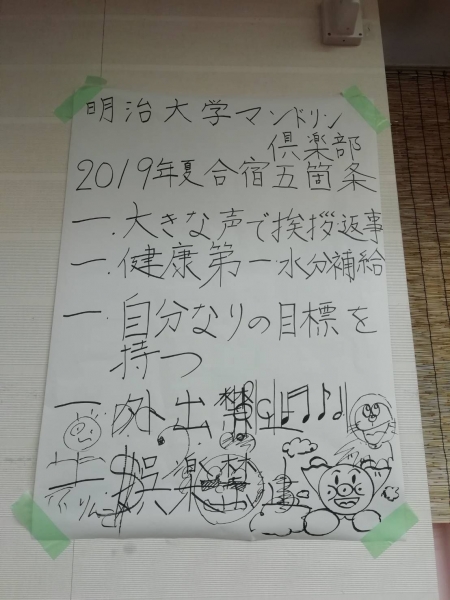 明治大学マンドリン
倶楽部
2019年夏合宿五箇条
一.大きな声で挨拶返事
一.健康第一水分補給
一.自分なりの目標を
持つ
一.外.出.禁止
一.娯楽禁